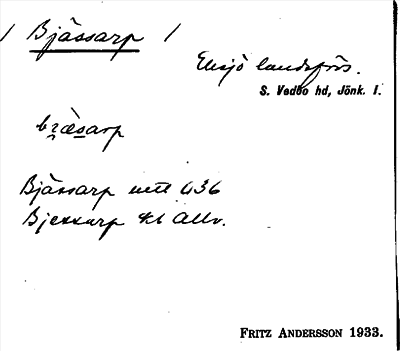 / Bjässarp /
Eksjö landsförs.
S. Vedbo hd, Jönk. l.
bɪæ̀sarp
Bjässarp
Bjessarp Allv.
FRITZ ANDERSSON 1933.